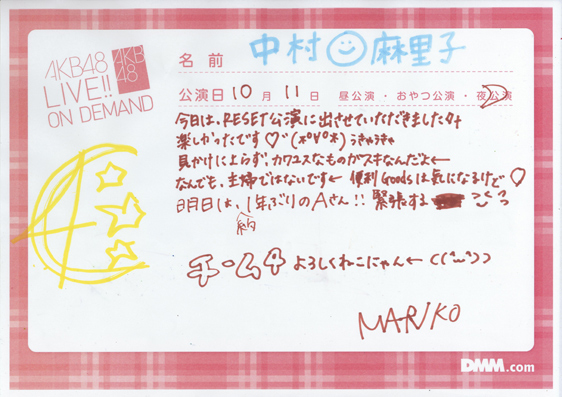 AKB48
LIVE!!
ON DEMAND
AKB
48
名前 中村麻里子
公演日 10月 11日 昼公演・おやつ公演・夜公演
今日は、RESET公演に出させていただきました
楽しかったです♡゛(*º∀º*) うきゃうきゃ
見かけによらず、カワユスなものがスキなんだよ←
なんでも、主婦ではないです← 便利Goodsは気になるけど♡
明日は、1年ぶりのAさん!! 緊張する
約
チーム4 よろしくねこにゃん← ((˘ω˘))
MARIKO
DMM.com